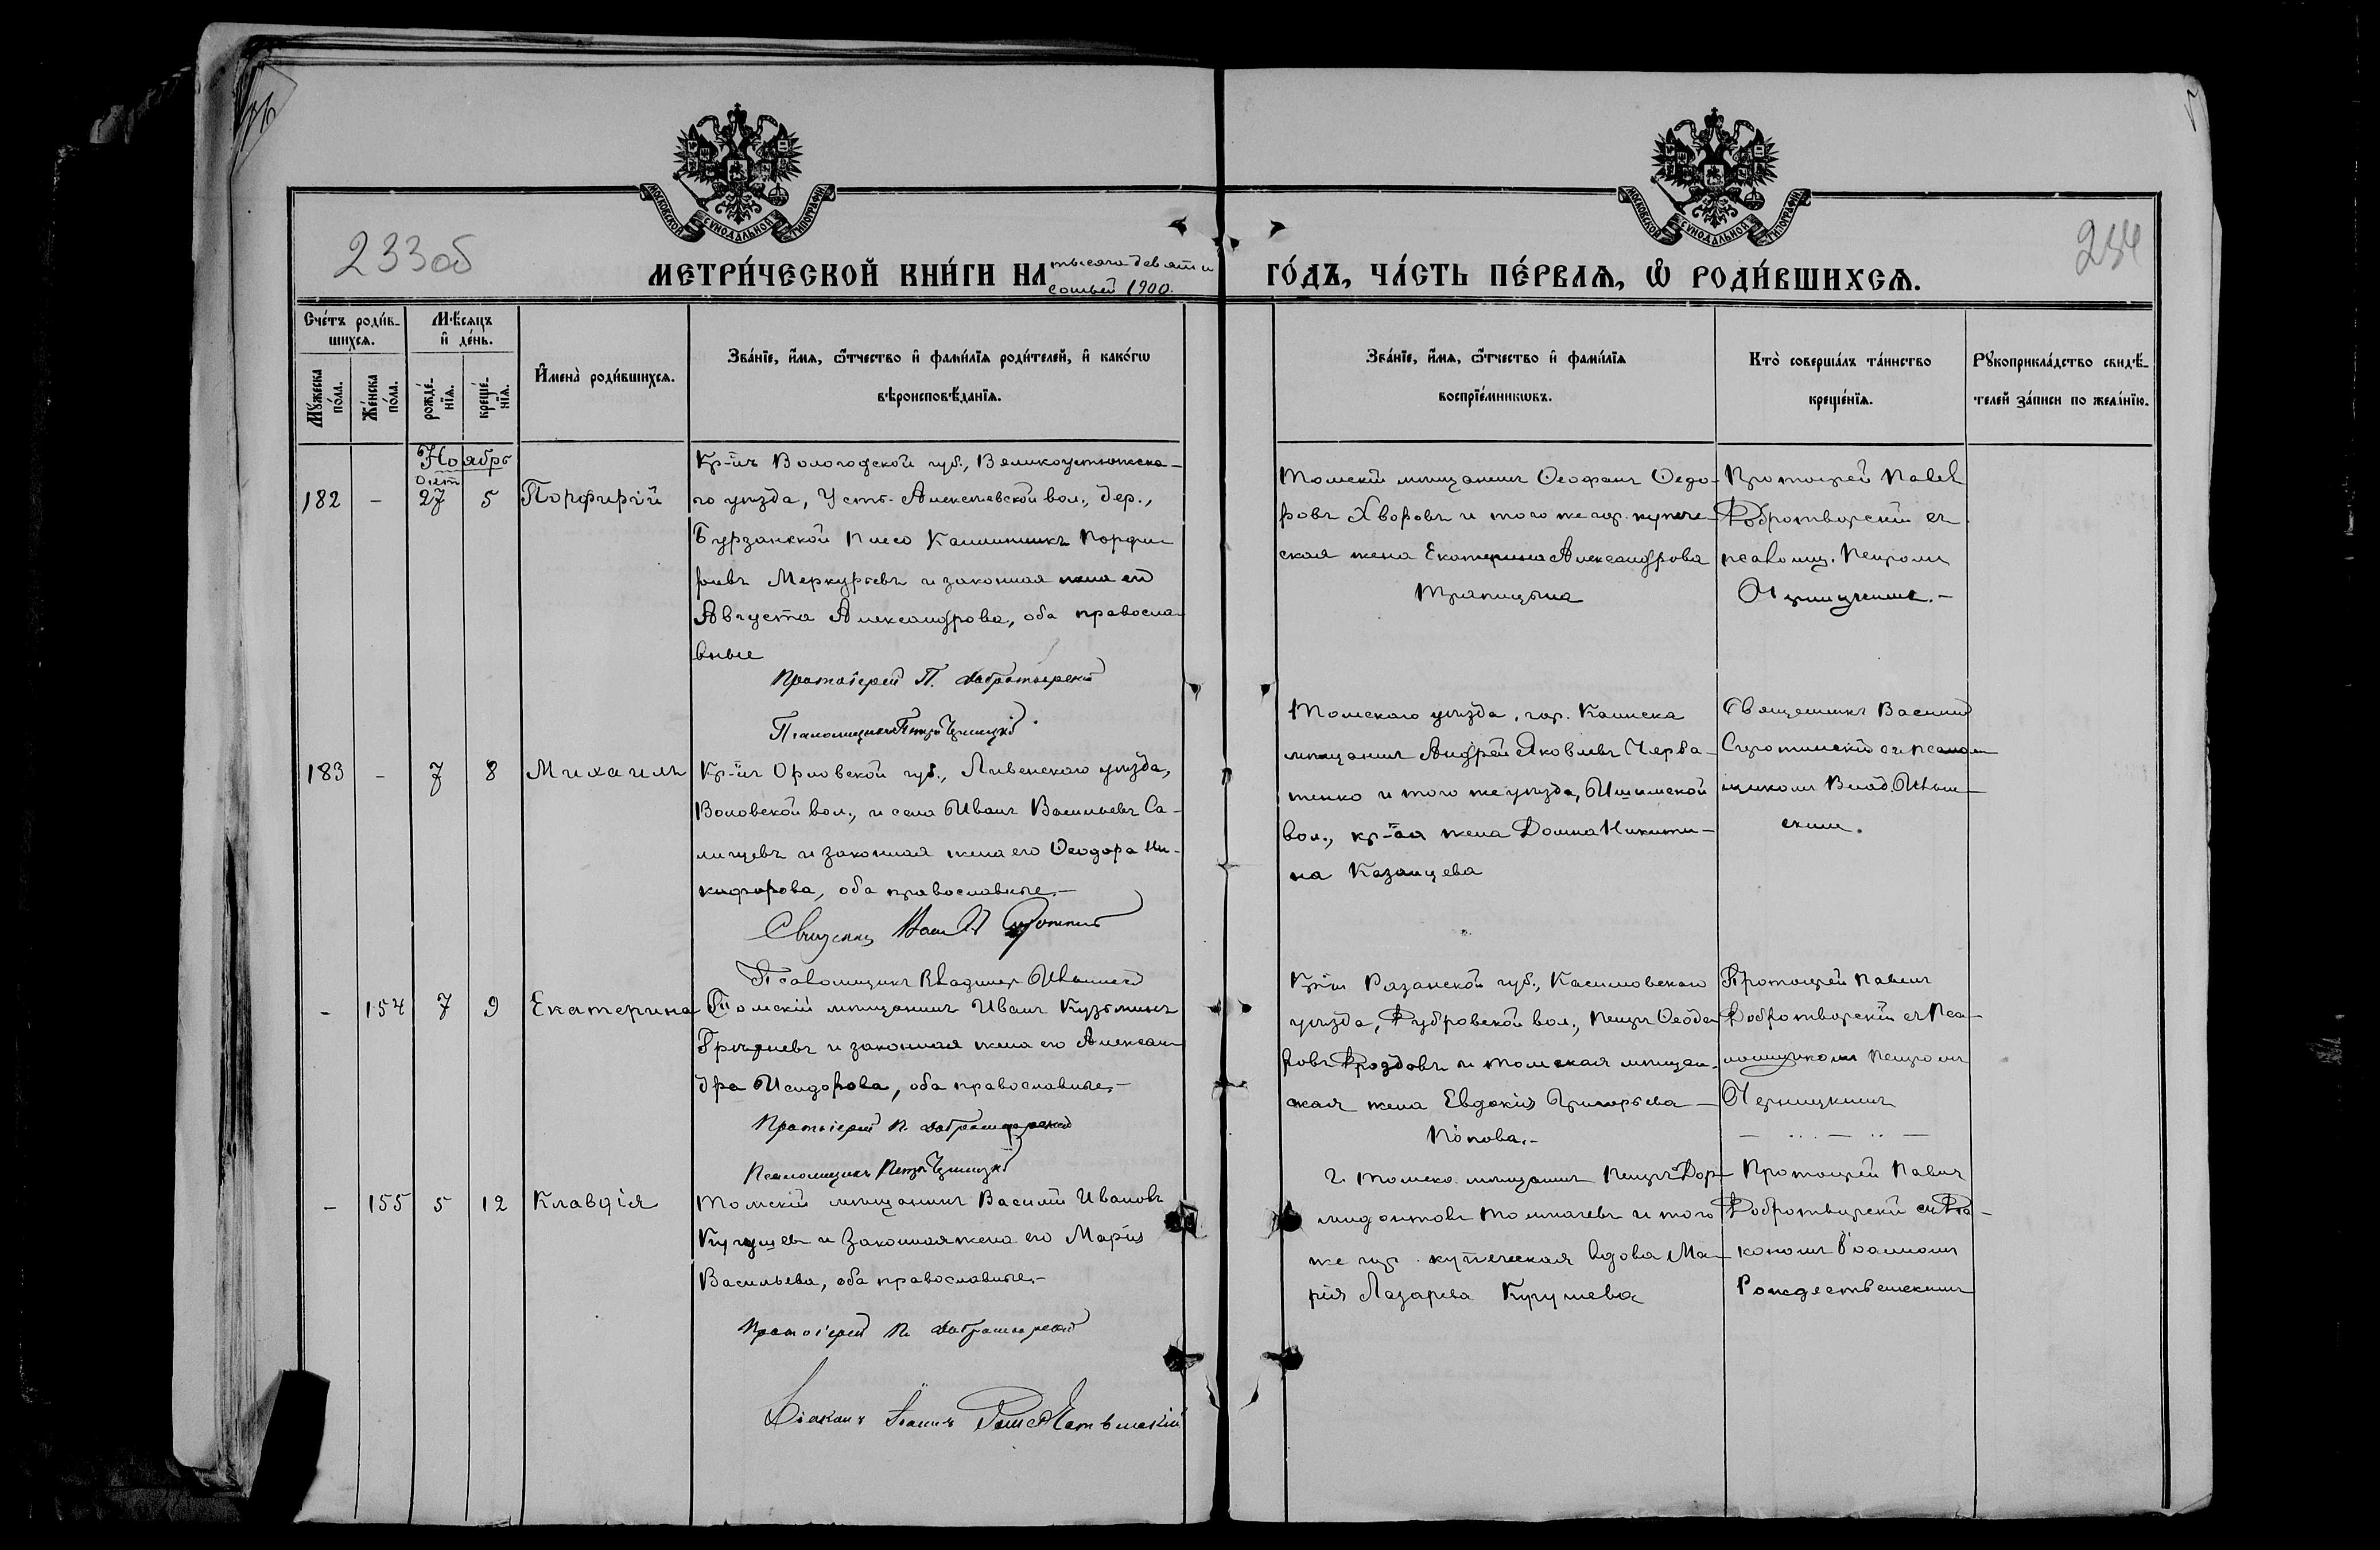 233об
234
МОСКОВСКОЙ СѴНОДАЛЬНОЙ ТИПОГРАФІИ
МОСКОВСКОЙ СѴНОДАЛЬНОЙ ТИПОГРАФІИ
МЕТРИ́ЧЕСКОЙ КНИ́ГИ НА тысяча девяти
сотый 1900.
ГО́ДЪ, ЧА́СТЬ ПЕ́РВАѦ, Ѡ РОДИ́ВШИХСѦ.
Сче́тъ роди́в-
шихсѧ.
Мꙋ́жеска по́ла.
Же́нска по́ла.
Мѣ́сѧцъ
и҆ де́нь.
рожде́-
нїѧ.
креще́-
нїѧ.
И҆мена̀ роди́вшихсѧ.
Зва́нїе, и҆́мѧ, ѻ҆́тчество и҆ фами́лїѧ роди́телей, и҆ како́гѡ
вѣроисповѣ́данїѧ.
Зва́нїе, и҆́мѧ, ѻ҆́тчество и҆ фами́лїѧ
воспрїе́мникѡвъ.
Кто̀ соверша́лъ та́инство
креще́нїѧ.
Рꙋкоприкла́дство свидѣ́-
телей за́писи по жела́нїю.
Ноябрь
Окт
182 - 27 5 Порфирій
Кр-инъ Вологодской губ., Великоустюжска-
го уѣзда, Усть-Алексѣевской вол., дер.,
Каллиникъ Порфи
рьевъ Меркурьевъ и законная жена его
Августа Александрова, оба правосла-
вные
Протоіерей П. Добротворскій
Псаломщикъ Петръ
Томскій мѣщанинъ Ѳеофанъ Ѳедо-
ровъ Хворовъ и того же гор. купече-
ская жена Екатерина Александрова
Трапицына
Протоіерей Павелъ
Добротворскій съ
псаломщ. Петромъ
183 - 7 8 Михаилъ
Кр-инъ Орловской губ., Ливенскаго уѣзда,
Воловской вол., и села Иванъ Васильевъ Са-
и законная жена его Ѳеодора Ни-
кифорова, оба православные.-
Псаломщикъ Владимір
Томскаго уѣзда, гор. Каинска
мѣщанинъ Андрей Яковлевъ Черба-
тенко и того же уѣзда, Ишимской
вол., кр-ая жена Домна Никити-
на Казанцева
Священникъ Василій
Сиротинскій съ псалом
щикомъ Влад.
- 154 7 9 Екатерина
Томскій мѣщанинъ Иванъ Кузьминъ
и законная жена его Алексан-
дра Исидорова, оба православные.-
Протоіерей П. Добротворскій
Псаломщикъ Петръ
Кр-инъ Рязанской губ., Касимовскаго
уѣзда, Дубровской вол., Петръ Ѳеодо-
ровъ Дроздовъ и томская мѣщан-
ская жена Евдокія Григорьева
Попова.-
Протоіерей Павелъ
Добротворскій съ Пса-
ломщикомъ Петромъ
- 155 5 12 Клавдія
Томскій мѣщанинъ Василій Ивановъ
Кугушевъ и законная жена его Марія
Васильева, оба православные.-
Протоіерей П. Добротворскій
Діаконъ Іоаннъ Рождественскій
г. Томска мѣщанинъ Петръ Дор-
мидонтовъ Толмачевъ и того
же гор. купеческая вдова Ма-
рія Лазарева Кугушева
Протоіерей Павелъ
Добротворскій съ Діа-
кономъ Іоанномъ
Рождественскимъ